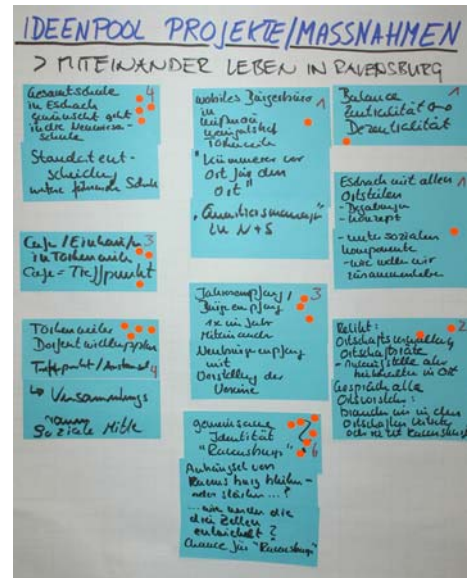 IDEENPOOL PROJEKTE/MASSNAHMEN
> MITEINANDER LEBEN IN RAVENSBURG
Gesamtschule 4
in Eschach
gewünscht geht
in die
schule
Standortent-
scheidung
weitere führende Schule
Cafe / Einkauf 3
in Torkenweiler
Cafe = Treffpunkt
Torkenweiler
Dorfentwicklungsplan
Treffpunkt / 4
↳ Versammlungs
raum
Soziale Mitte
mobiles Bürgerbüro 1
in
Torkenweiler
"Kümmerer vor
Ort für den
Ort"
"Quartiersmanager"
in N + S
Jahresempfang / 3
Bürgerempfang
1x im Jahr
Miteinander
Neubürgerempfang
mit
Vorstellung der
Vereine
gemeinsame
Identität
"Ravensburg" 6
Anhängsel von
Ravensburg bleiben -
oder stärken ...?
... wie werden die
drei Zellen
entwickelt?
Chance für "Ravensburg"
Balance 1
Zentralität
Dezentralität
Eschach mit allen 1
Ortsteilen
- konzept
- unter sozialen
Komponente
- wie wollen wir
zusammenleben
Relikt: 2
Ortschaftsverwaltung
Ortschaftsräte
Gespräch alle
Ortsvorsteher:
brauchen wir in den
Ortschaften